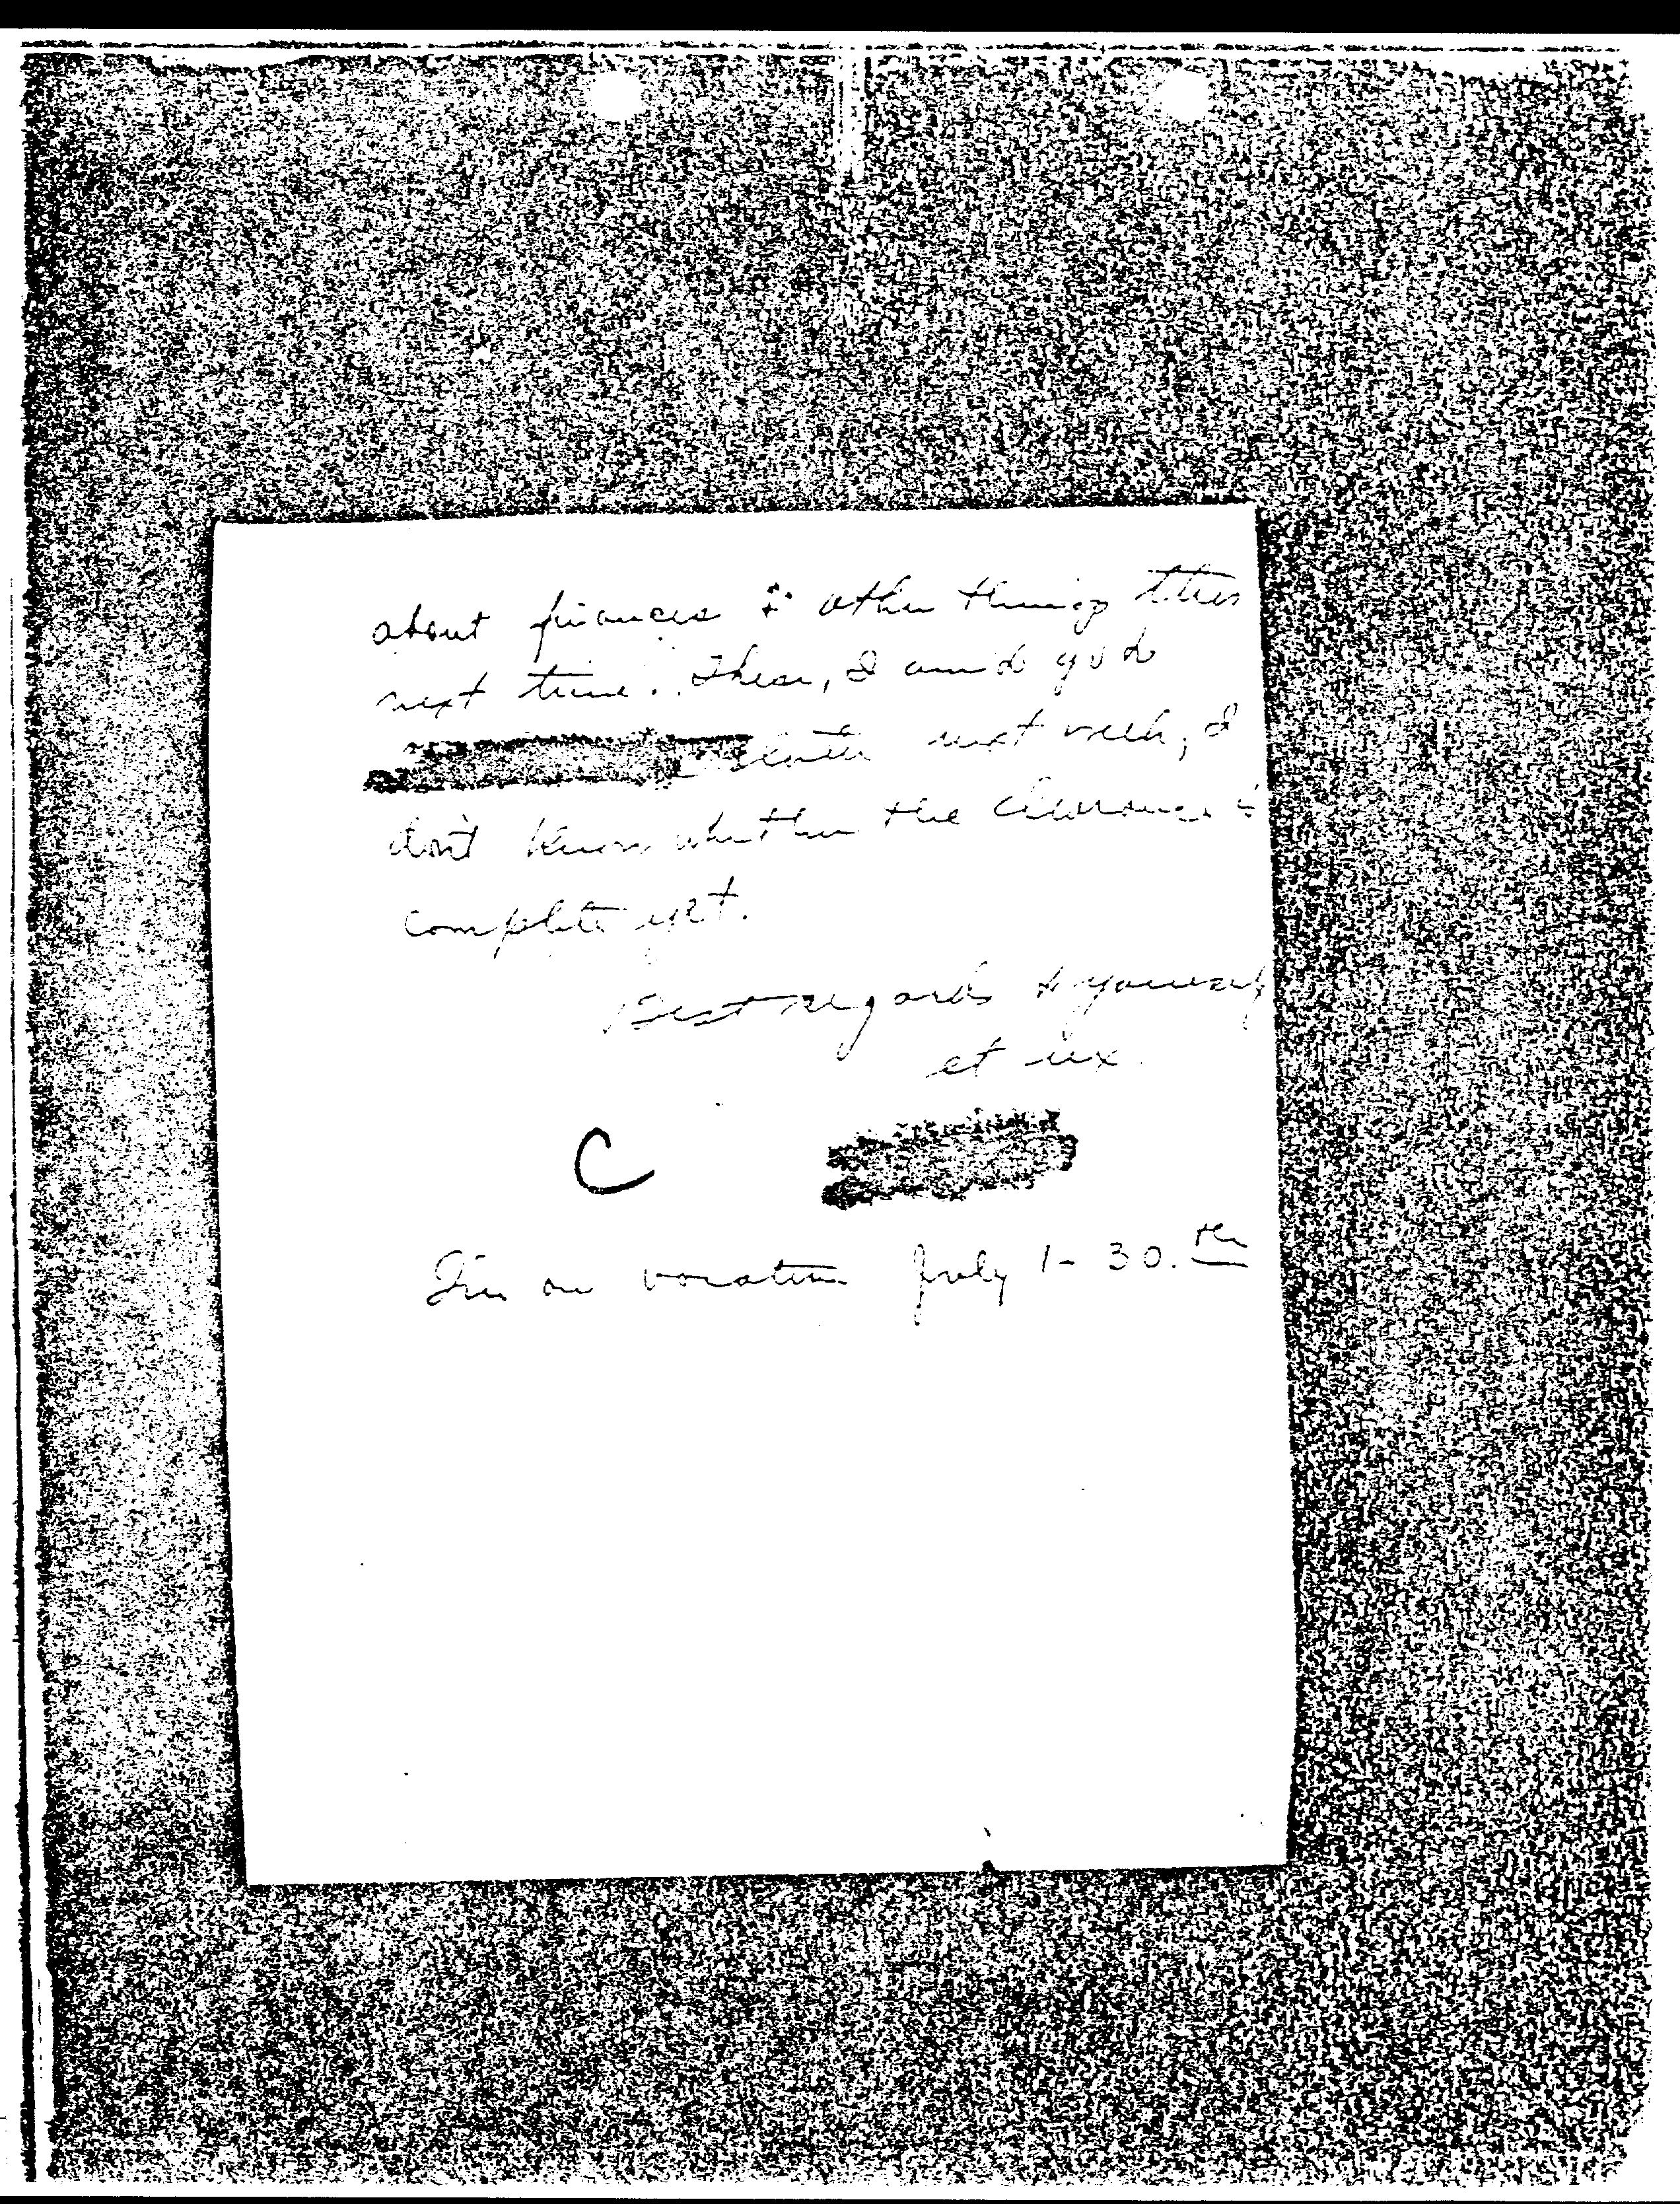 about finances & other things
next time. I
next week, I
don't know whether the clearance is
complete yet.
Best regards to yourself
et ux.
C
I'm on vacation July 1-30.th